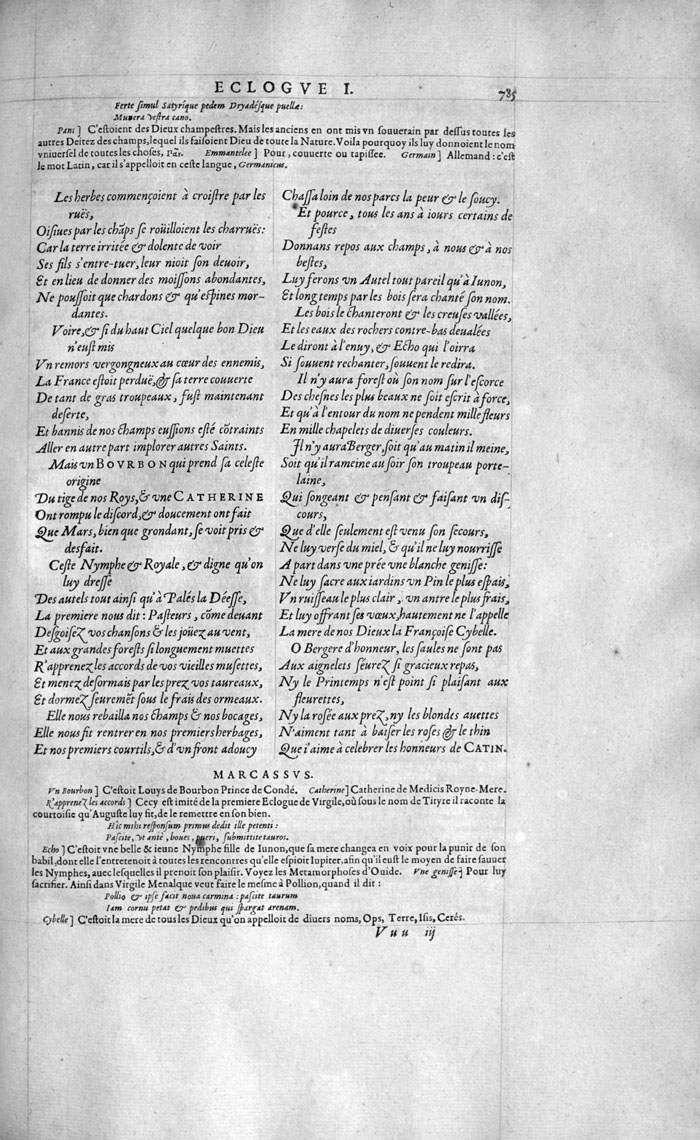 ECLOGVE I. 785
Ferte simul Satyrique pedem Dryadésque puellæ:
Munera vestra cano.
Pans] C'estoient des Dieux champestres. Mais les anciens en ont mis vn souuerain par dessus toutes les
autres Deitez des champs, lequel ils faisoient Dieu de toute la Nature. Voila pourquoy ils luy donnoient le nom
vniuersel de toutes les choses, Emmantelee] Pour, couuerte ou tapissee. Germain] Allemand : c'est
le mot Latin, car il s'appelloit en ceste langue, Germanicus.
Les herbes commençoient à croistre par les
ruës,
Oisiues par les chāps se roüilloient les charruës:
Car la terre irritée & dolente de voir
Ses fils s'entre-tuer, leur nioit son deuoir,
Et en lieu de donner des moissons abondantes,
Ne poussoit que chardons & qu'espines mor-
dantes.
Voire, & si du haut Ciel quelque bon Dieu
n'eust mis
Vn remors vergongneux au cœur des ennemis,
La France estoit perduë, & sa terre couuerte
De tant de gras troupeaux, fust maintenant
deserte,
Et bannis de nos champs eussions esté cōtraints
Aller en autre part implorer autres Saints.
Mais vn BOVRBON qui prend sa celeste
origine
Du tige de nos Roys, & vne CATHERINE
Ont rompu le discord, & doucement ont fait
Que Mars, bien que grondant, se voit pris &
desfait.
Ceste Nymphe & Royale, & digne qu'on
luy dresse
Des autels tout ainsi qu'à Palés la Déesse,
La premiere nous dit : Pasteurs, cōme deuant
Desgoisez vos chansons & les joüez au vent,
Et aux grandes forests si longuement muettes
R'apprenez les accords de vos vieilles musettes,
Et menez desormais par les prez vos taureaux,
Et dormez seuremēt sous le frais des ormeaux.
Elle nous rebailla nos champs & nos bocages,
Elle nous fit rentrer en nos premiers herbages,
Et nos premiers courtils, & d'vn front adoucy
Chassa loin de nos parcs la peur & le soucy.
Et pource, tous les ans à iours certains de
festes
Donnans repos aux champs, à nous & à nos
bestes,
Luy ferons vn Autel tout pareil qu'à Iunon,
Et long temps par les bois sera chanté son nom.
Les bois le chanteront & les creuses vallées,
Et les eaux des rochers contre-bas deualées
Le diront à l'enuy, & Echo qui l'oirra
Si souuent rechanter, souuent le redira.
Il n'y aura forest où son nom sur l'escorce
Des chesnes les plus beaux ne soit escrit à force,
Et qu'à l'entour du nom ne pendent mille fleurs
En mille chapelets de diuerses couleurs.
Il n'y aura Berger, soit qu'au matin il meine,
Soit qu'il rameine au soir son troupeau porte-
laine,
Qui songeant & pensant & faisant vn dis-
cours,
Que d'elle seulement est venu son secours,
Ne luy verse du miel, & qu'il ne luy nourrisse
A part dans vne prée vne blanche genisse:
Ne luy sacre aux iardins vn Pin le plus espais,
Vn ruisseau le plus clair, vn antre le plus frais,
Et luy offrant ses vœux, hautement ne l'appelle
La mere de nos Dieux la Françoise Cybelle.
O Bergere d'honneur, les saules ne sont pas
Aux aignelets seurez si gracieux repas,
Ny le Printemps n'est point si plaisant aux
fleurettes,
Ny la rosée aux prez, ny les blondes auettes
N'aiment tant à baiser les roses & le thin
Que i'aime à celebrer les honneurs de CATIN.
MARCASSVS.
Vn Bourbon] C'estoit Louys de Bourbon Prince de Condé. Catherine] Catherine de Medicis Royne-Mere.
R'apprenez les accords] Cecy est imité de la premiere Eclogue de Virgile, où sous le nom de Tityre il raconte la
courtoisie qu'Auguste luy fit, de le remettre en son bien.
Hic mihi responsum primus dedit ille petenti:
Pascite, vt antè, boues, pueri, submittite tauros.
Echo] C'estoit vne belle & ieune Nymphe fille de Iunon, que sa mere changea en voix pour la punir de son
babil, dont elle l'entretenoit à toutes les rencontres qu'elle espioit Iupiter, afin qu'il eust le moyen de faire sauuer
les Nymphes, auec lesquelles il prenoit son plaisir. Voyez les Metamorphoses d'Ouide. Vne genisse] Pour luy
sacrifier. Ainsi dans Virgile Menalque veut faire le mesme à Pollion, quand il dit :
Pollio & ipse facit noua carmina : pascite taurum
Iam cornu petat & pedibus qui spargat arenam.
Cybelle] C'estoit la mere de tous les Dieux qu'on appelloit de diuers noms, Ops, Terre, Isis, Cerés.
Vuu iij